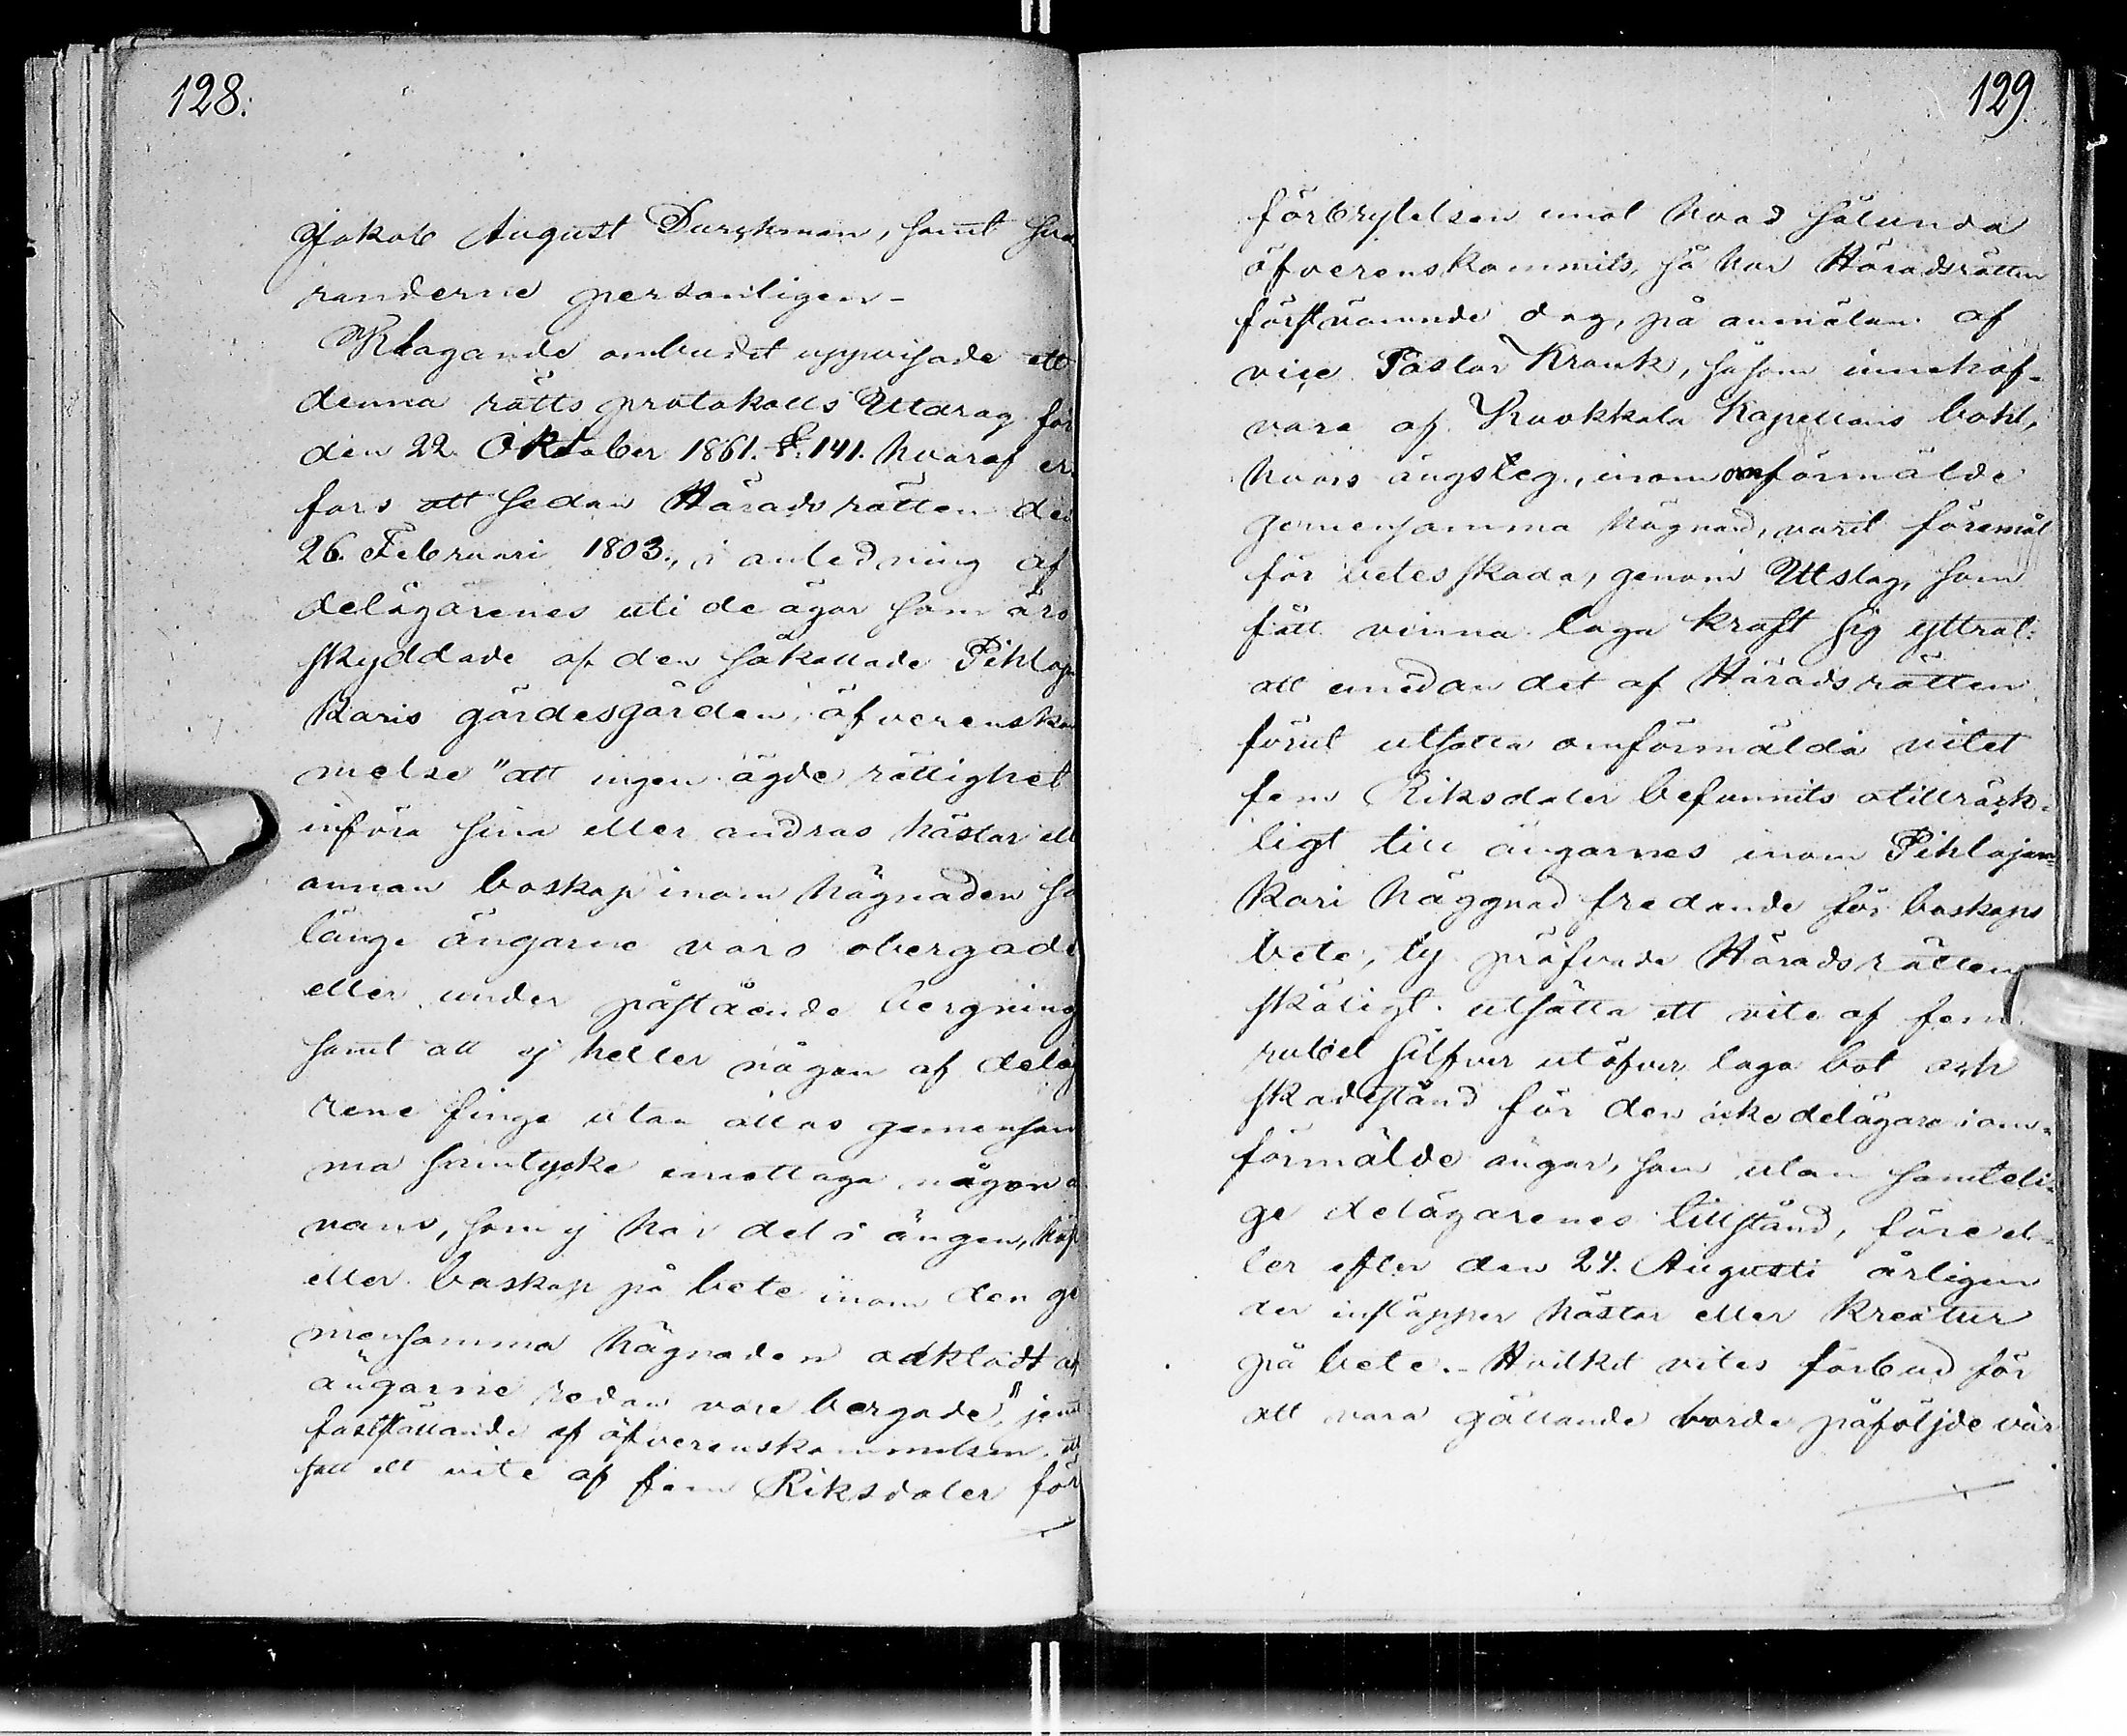 128.
Jakob August Durchman, samt sva
randerne personligen.
Klagande ombudet uppvisade ett
denna rätts protokolls Utdrag för
den 22. Oktober 1861. §. 141. hvaraf er
fors att sedan Häradsrätten den
26. Februari 1803., i anledning af
delägarenes uti de ägor som äro
skyddade af den såkallade Pihlaja
Karis gärdesgården, öfverenskom
melse "att ingen ägde rättighet
införa sina eller andras hästar ell
annan boskap inom hägnaden så
länge ängarne voro obergade
eller under påstående bergning
samt att ej heller någon af deläg
rene finge utan allas gemensam
ma samtycke emottaga någon an
nans, som ej har del i ängen, häst
eller boskap på bete inom den ge
mensamma hägnaden oaktadt att
ängarne redan vore bergade", jemte
fastställande af öfverenskommelsen, ut
satt ett vite af fem Riksdaler för
129.
förbrytelsen emot hvad sålunda
öfverenskommits, så har Häradsrätten
förstnämnde dag, på anmälan af
vice Pastor Krank, såsom innehaf-
vare af Ruokkala Kapellans bohl,
hvars ängsteg, inom omförmälde
gemensamma hägnad, varit föremål
för betesskada, genom Utslag, som
fått vinna laga kraft sig yttrat:
att emedan det af Häradsrätten
förut utsatta omförmälda vitet
fem Riksdaler befunnits otillräck-
ligt till ängarnes inom Pihlajan-
Kari häggnad fredande för boskaps
bete, ty pröfvade Häradsrätten
skäligt utsätta ett vite af fem
rubel silfver utöfver laga bot och
skadestånd för den icke delägare i om-
förmälde ängar, som utan samteli-
ge delägarenes tillstånd, före el-
ler efter den 24. Augusti årligen
der insläpper hästar eller kreatur
på bete. - Hvilket vites förbud för
att vara gällande borde påföljde vår